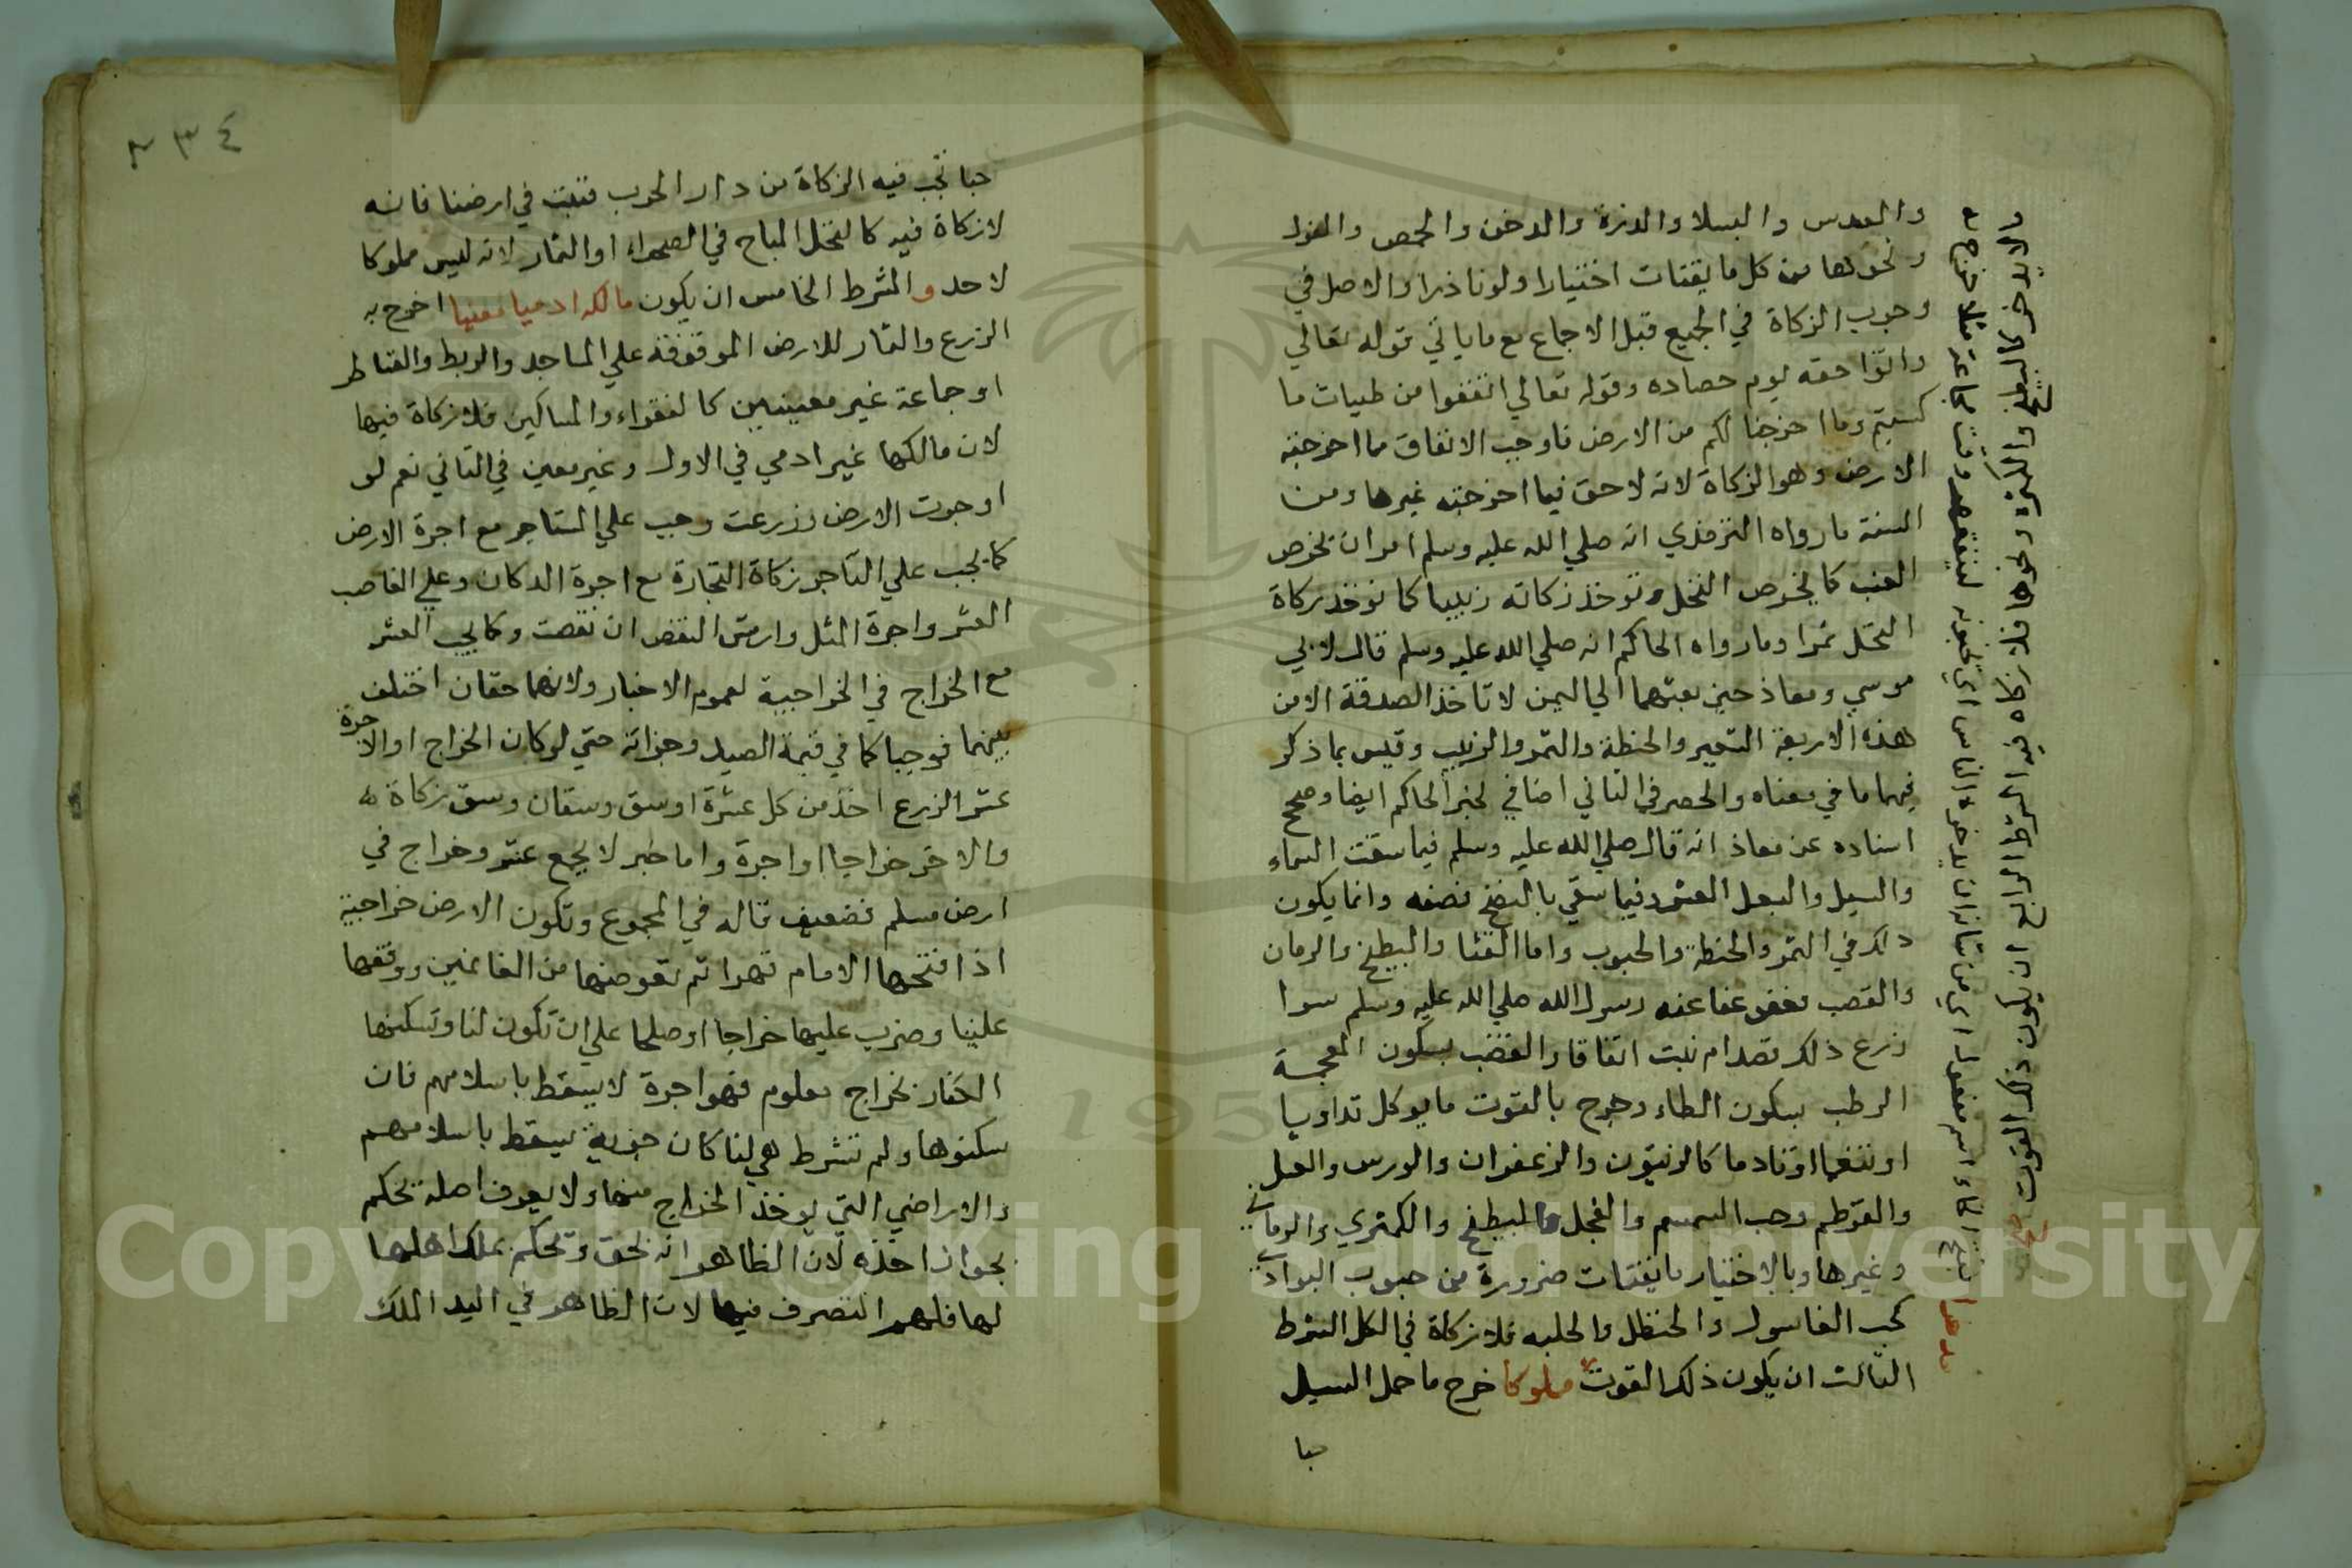 والعدس والبسلا والذرة والدخن والحمص والفول
ونحوها من كل ما يقتات اختيارا ولو نادرا والاصل في
وجوب الزكاة في الجميع قبل الاجماع مع ما ياتي قوله تعالي
واتوا حقه يوم حصاده وقوله تعالي انفقوا من طيبات ما
كسبتم ومما اخرجنا لكم من الارض فاوجب الانفاق مما اخرجته
الارض وهو الزكاة لانه لا حق فيما اخرجته غيرها ومن
السنة ما رواه الترمذي انه صلي الله عليه وسلم امر ان يخرص
العنب كما يخرص النخل وتوخذ زكاته زبيبا كما توخذ زكاة
النخل تمرا وما رواه الحاكم انه صلي الله عليه وسلم قال لابي
موسي ومعاذ حين بعثهما الي اليمن لا تاخذ الصدقة الا من
هذه الاربعة الشعير والحنطة والتمر والزبيب وقيس بما ذكر
فيهما ما في معناه والحصر في الثاني اضافي لخبر الحاكم ايضا وصحح
اسناده عن معاذ انه قال صلي الله عليه وسلم فيما سقت السماء
والسيل والبعل العشر وفيما سقي بالنضح نصفه وانما يكون
ذلك في التمر والحنطة والحبوب واما القثا والبطيخ والرمان
والقصب فعفو عفا عنه رسول الله صلي الله عليه وسلم سوا
زرع ذلك قصدا ام نبت اتفاقا والقضب بسكون المعجمة
الرطب بسكون الطاء وخرج بالقوت ما يوكل تداويا
او تنعما او تادما كالزيتون والزعفران والورس والعسل
والقرطم وحب السمسم والفجل والبطيخ والكمثري والرمان
وغيرها وبالاختيار ما يقتات ضرورة من حبوب البوادي
كحب الغاسول والحنظل والحلبه فلا زكاة في الكل الشرط
الثالث ان يكون ذلك القوت مملوكا خرج ما حمل السيل
حبا
الشرط الرابع ان يكون ذلك القوت
٢٣٤
حبا تجب فيه الزكاة من دار الحرب فنبت في ارضنا فانه
لا زكاة فيه كالنخل المباح في الصحراء او الثمار لانه ليس مملوكا
لاحد والشرط الخامس ان يكون مالكه ادميا معينا اخرج به
الزرع والثمار للارض الموقوفة علي المساجد والربط والقناطر
او جماعة غير معينين كالفقراء والمساكين فلا زكاة فيها
لان مالكها غير ادمي في الاول وغير معين في الثاني نعم لو
اوجرت الارض وزرعت وجب علي المستاجر مع اجرة الارض
كما يجب علي التاجر زكاة التجارة مع اجرة الدكان وعلي الغاصب
العشر واجرة المثل وارش النقص ان نقصت وكما يجب العشر
مع الخراج في الخراجية لعموم الاخبار ولانهما حقان اختلف
بينهما فوجبا كما في قيمة الصيد وجزائه حتي لو كان الخراج او الاجرة
عشر الزرع اخذ من كل عشرة اوسق وسقان وسق زكاة
والاخر خراجا او اجرة واما خبر لا يجمع عشر وخراج في
ارض مسلم فضعيف قاله في المجموع وتكون الارض خراجية
اذا فتحها الامام قهرا ثم تعوضها من الغانمين ووقفها
علينا وضرب عليها خراجا او صلحا علي ان تكون لنا وتسكنها
الكفار بخراج معلوم فهو اجرة لا يسقط باسلامهم فان
سكنوها ولم تشرط هي لنا كان جزية يسقط باسلامهم
والاراضي التي يوخذ الخراج منها ولا يعرف اصله يحكم
بجواز اخذه لان الظاهر انه بحق ويحكم بملك اهلها
لها فلهم التصرف فيها لان الظاهر في اليد الملك
Copyright © King Saud University